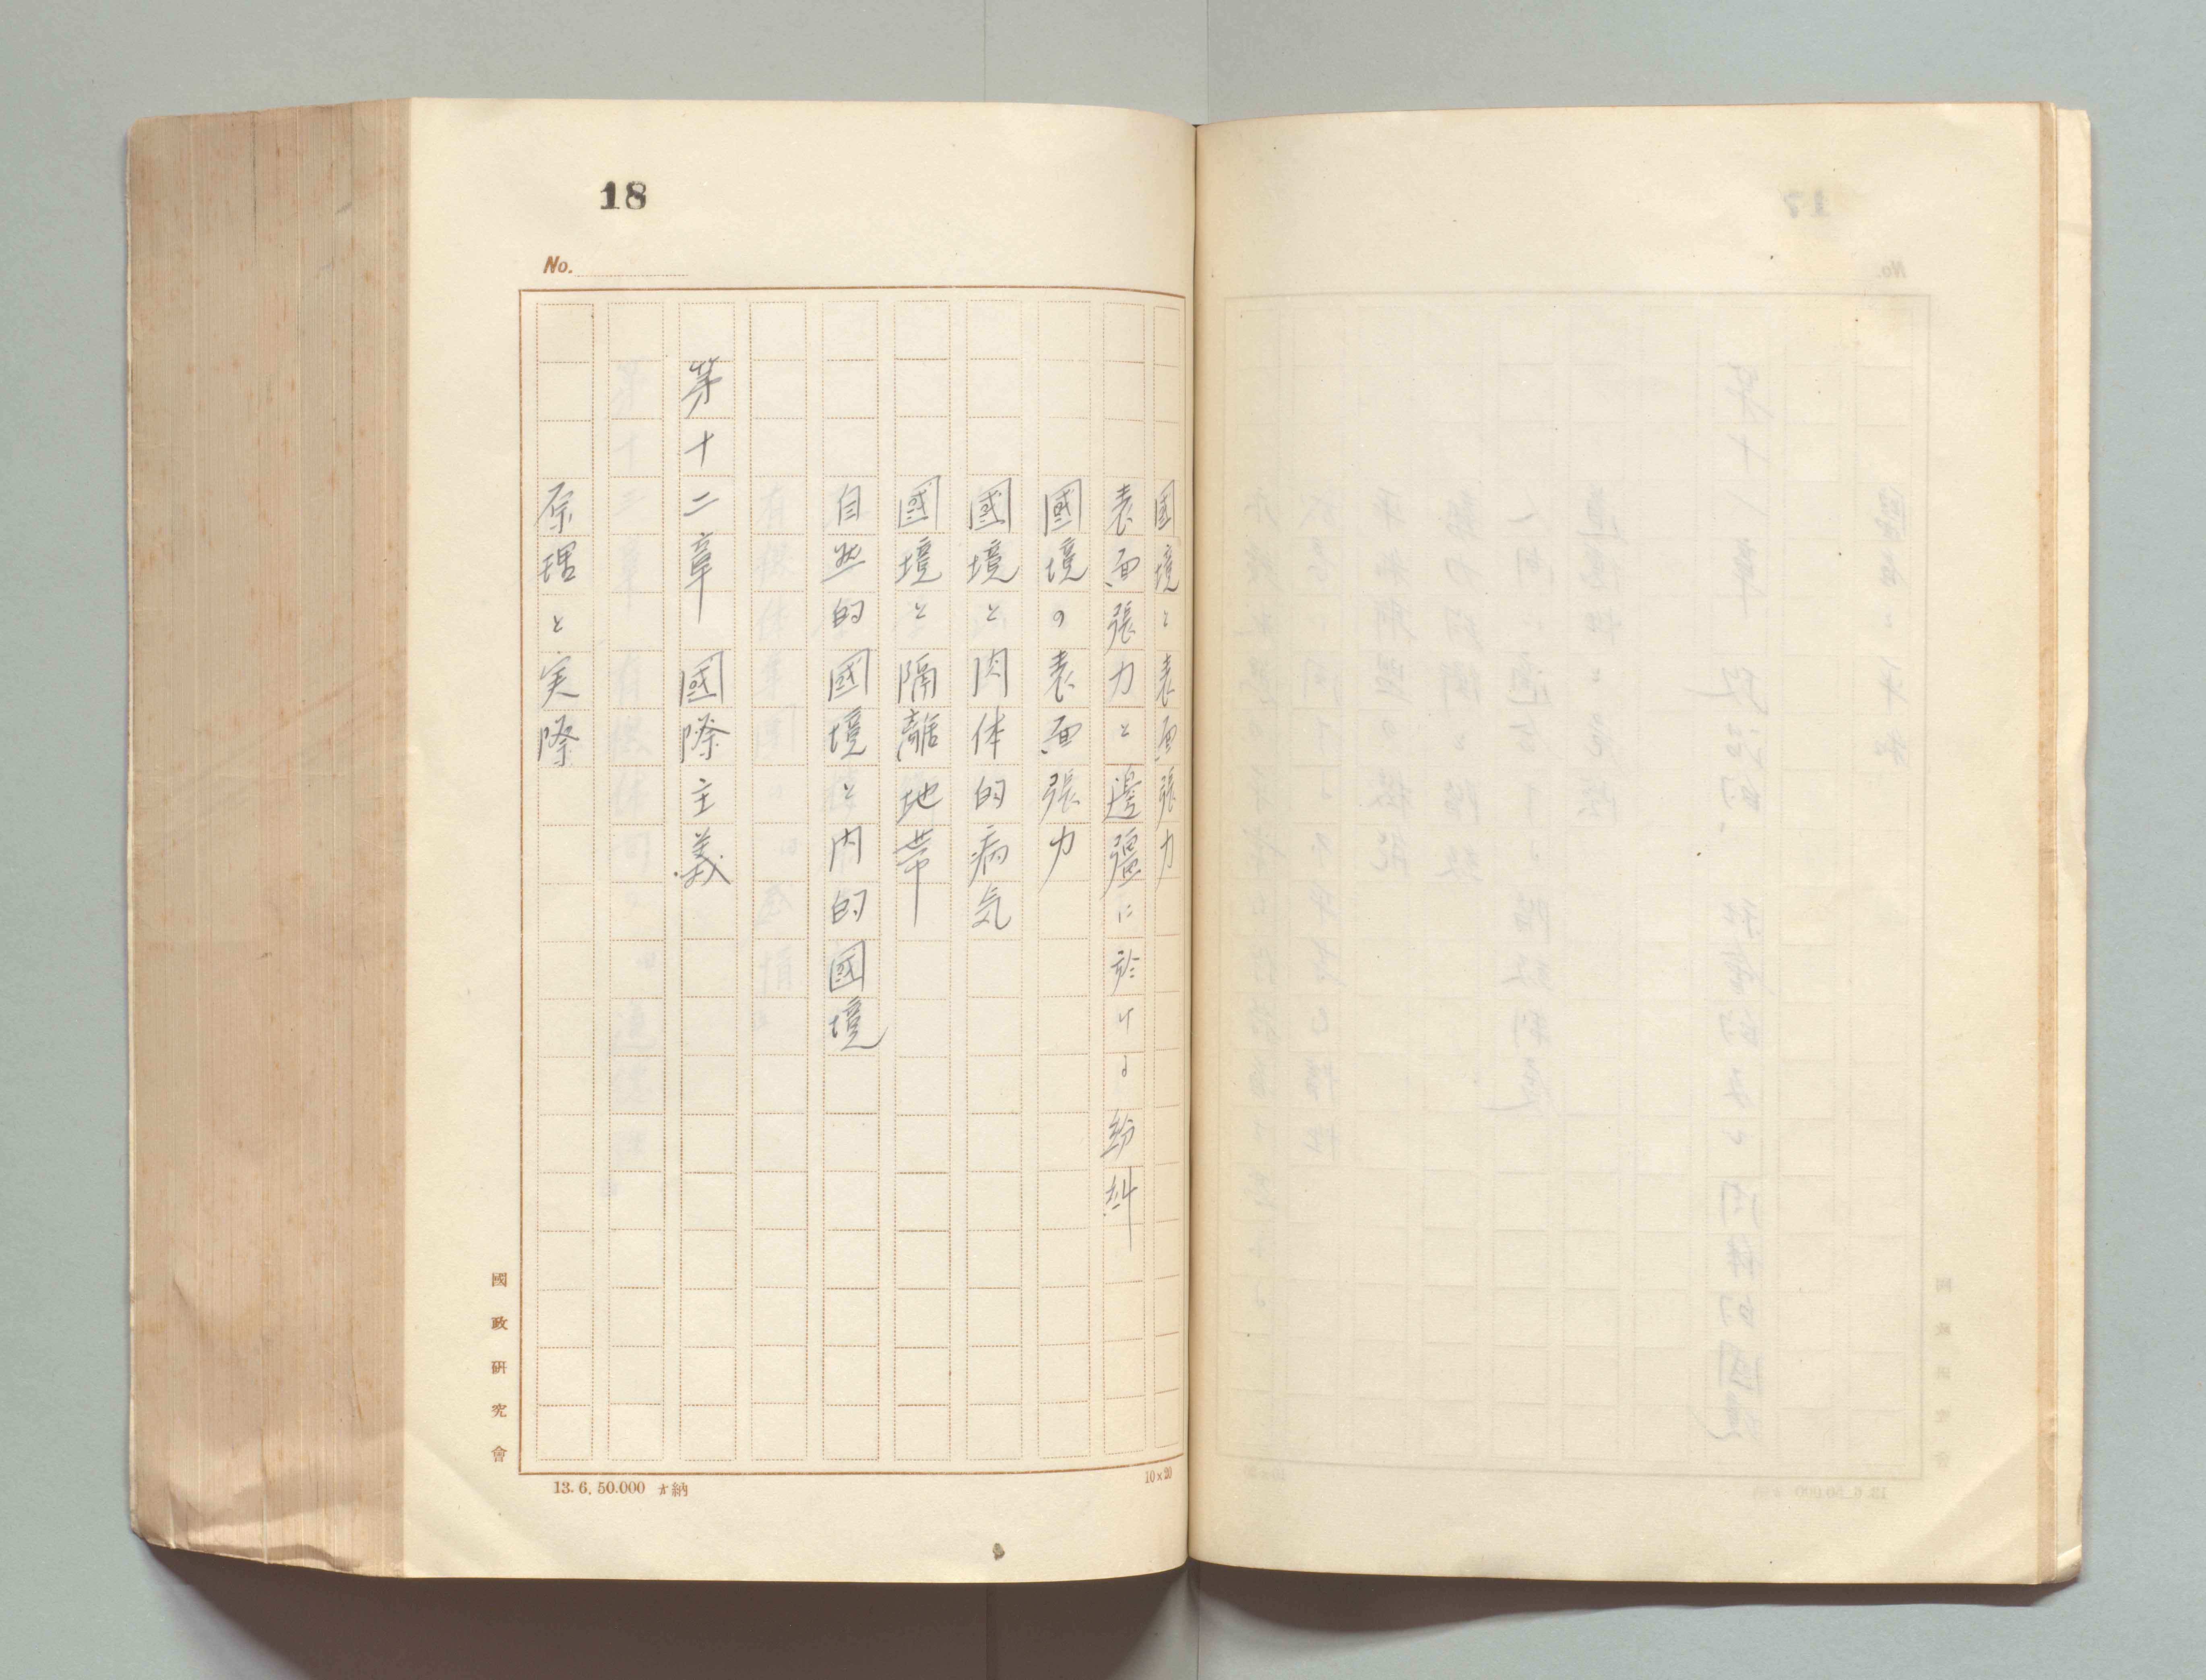 18
No.
国境と表面張力
表面張力と邊彊に於ける紛糾
國境の表面張力
國境と肉体的病気
國境と隔離地帯
自然的國境と内的國境
第十二章 國際主義
原理と実際
國政研究會
13.6.50.000 納
10×20